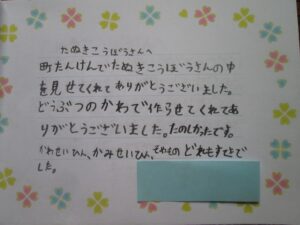 たぬきこうぼうさんへ
町たんけんでたぬきこうぼうさんの中
を見せてくれてありがとうございました。
どうぶつのかわで作らせてくれてあ
りがとうございました。たのしかったです。
かわせいひん、かみせいひん、どれもすてきで
した。